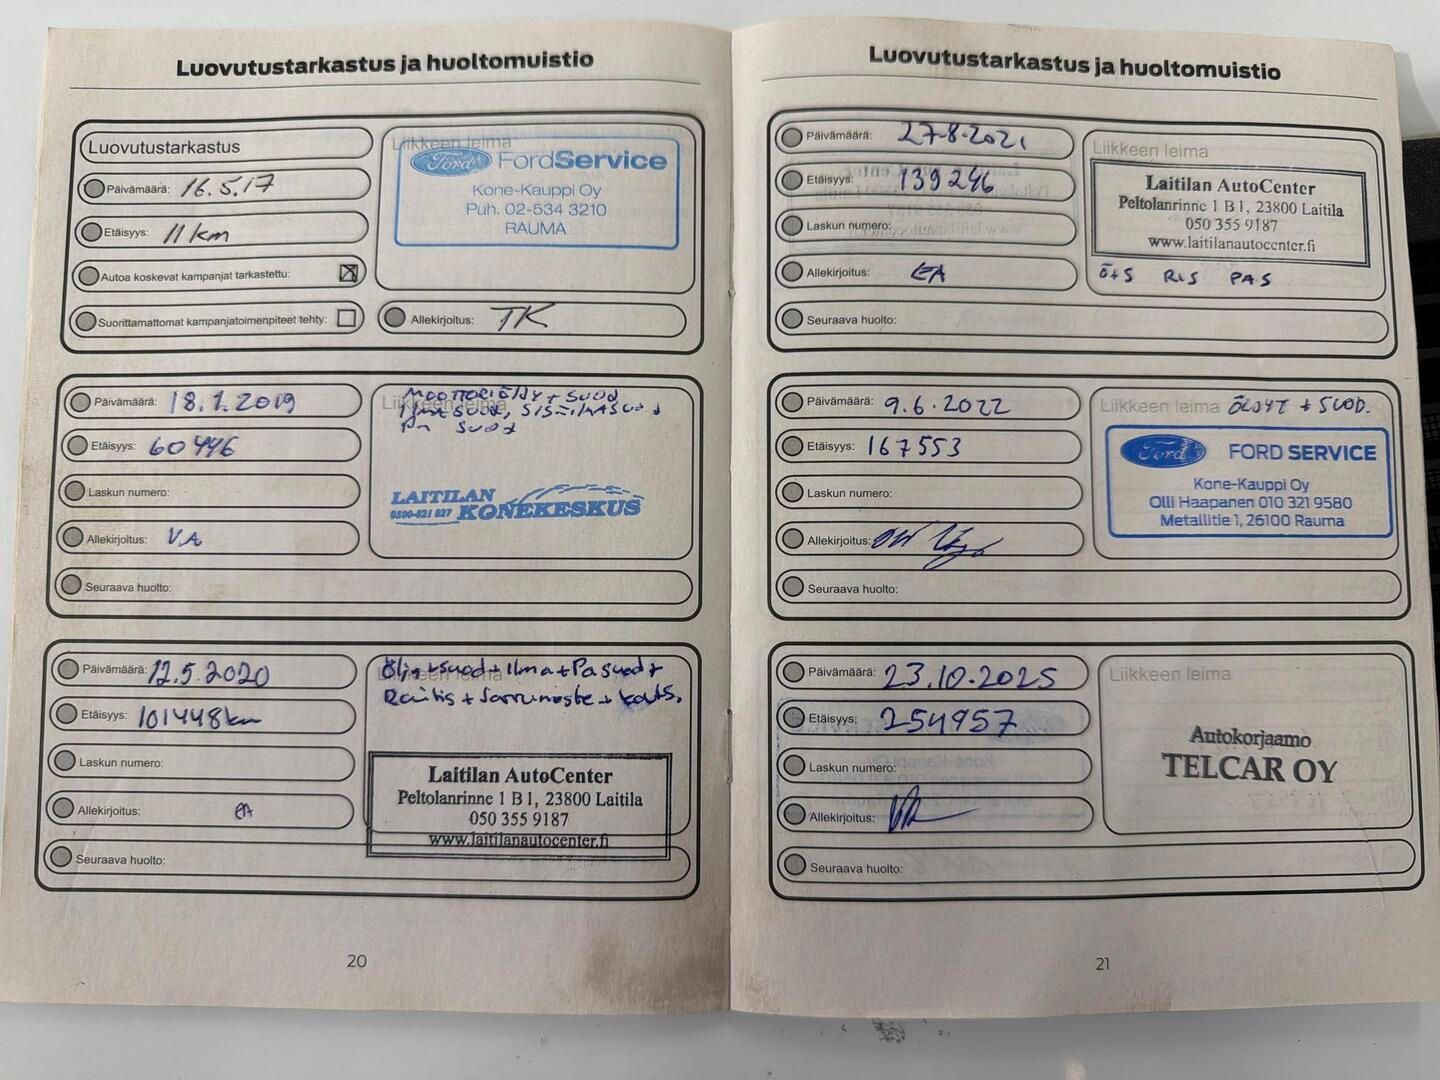 Luovutustarkastus ja huoltomuistio
Luovutustarkastus
Päivämäärä: 16.5.17
Etäisyys: 11 km
Autoa koskevat kampanjat tarkastettu:
Suorittamattomat kampanjatoimenpiteet tehty:
Liikkeen leima
Ford FordService
Kone-Kauppi Oy
Puh. 02-534 3210
RAUMA
Allekirjoitus: TK
Päivämäärä: 18.1.2019
Etäisyys: 60446
Laskun numero:
Allekirjoitus: VA
Seuraava huolto:
Liikkeen leima
MOOTTORIÖLJY + SUOD
PA SUOD
LAITILAN
0500-821 827 KONEKESKUS
Päivämäärä: 12.5.2020
Etäisyys: 101448 km
Laskun numero:
Allekirjoitus: EA
Seuraava huolto:
Liikkeen leima
Öljy+suod+Ilma+Pa suod+
Raitis + Jarruneste +
Laitilan AutoCenter
Peltolanrinne 1 B 1, 23800 Laitila
050 355 9187
www.laitilanautocenter.fi
20
Luovutustarkastus ja huoltomuistio
Päivämäärä: 27.8.2021
Etäisyys: 139246
Laskun numero:
Allekirjoitus: EA
Seuraava huolto:
Liikkeen leima
Laitilan AutoCenter
Peltolanrinne 1 B 1, 23800 Laitila
050 355 9187
www.laitilanautocenter.fi
Ö+S RIS PAS
Päivämäärä: 9.6.2022
Etäisyys: 167553
Laskun numero:
Allekirjoitus:
Seuraava huolto:
Liikkeen leima ÖLJYT + SUOD.
Ford FORD SERVICE
Kone-Kauppi Oy
Olli Haapanen 010 321 9580
Metallitie 1, 26100 Rauma
Päivämäärä: 23.10.2025
Etäisyys: 254957
Laskun numero:
Allekirjoitus:
Seuraava huolto:
Liikkeen leima
Autokorjaamo
TELCAR OY
21